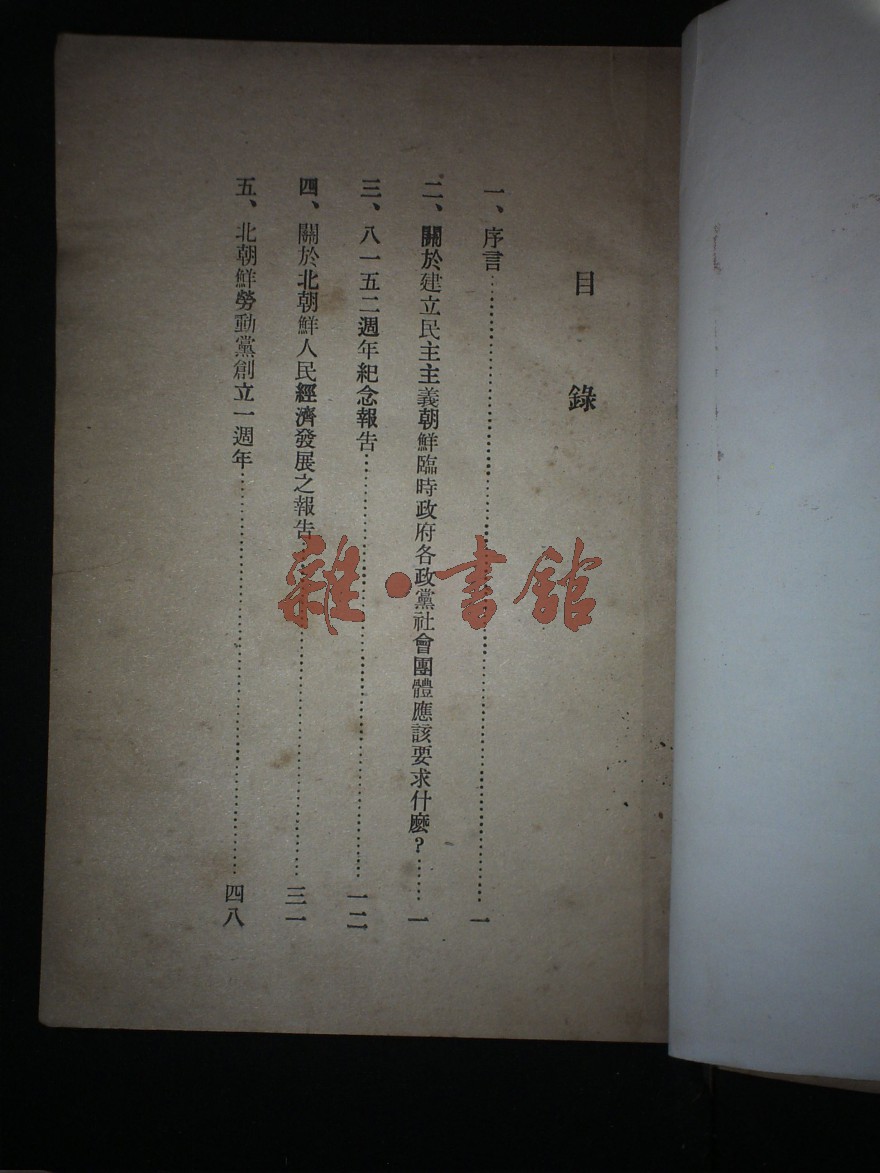 目錄
一、序言……一
二、關於建立民主主義朝鮮臨時政府各政黨社會團體應該要求什麼？……一
三、八一五二週年紀念報告……一二
四、關於北朝鮮人民經濟發展之報告……三一
五、北朝鮮勞動黨創立一週年……四八
雜·書館